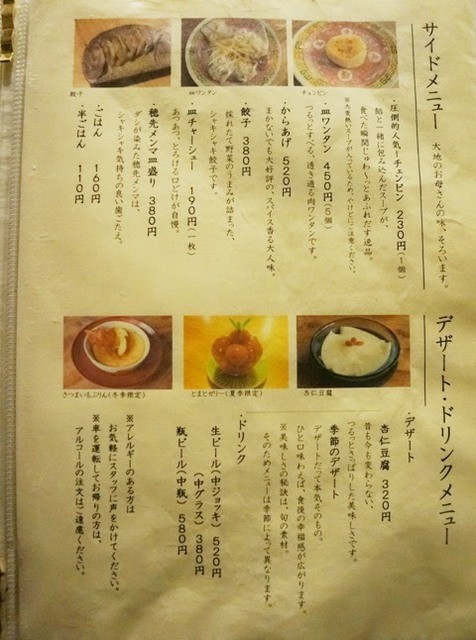 サイドメニュー 大地のお母さんの味、そろいます。
餃子
皿ワンタン
チェンピン
・圧倒的人気！チェンピン 230円(1個)
餡と一緒に包み込んだスープが、
食べた瞬間じゅわ～っとあふれだす逸品。
※大変熱いスープが入っているため、やけどにご注意ください。
・皿ワンタン 450円(5個)
つるっとすべる、透き通る肉ワンタンです。
・からあげ 520円
まかないでも大好評の、スパイス香る大人味。
・餃子 380円
採れたて野菜のうまみが詰まった、
シャキシャキ餃子です。
・皿チャーシュー 190円(一枚)
あつあつ、とろける口どけが自慢。
・穂先メンマ皿盛り 380円
ダシが染みた穂先メンマは、
シャキシャキ気持ちの良い歯ごたえ。
・ごはん 160円
・半ごはん 110円
デザート・ドリンクメニュー
さつまいもぷりん(冬季限定)
とまとゼリー(夏季限定)
杏仁豆腐
・デザート
杏仁豆腐 320円
昔も今も変わらない、
つるっとさっぱりした美味しさです。
季節のデザート
デザートだって本気そのもの。
ひと口味わえば、食後の幸福感が広がります。
※美味しさの秘訣は、旬の素材。
そのためメニューは季節によって異なります。
・ドリンク
生ビール(中ジョッキ) 520円
(中グラス) 380円
瓶ビール(中瓶) 580円
※アレルギーのある方は
お気軽にスタッフに声をかけてください。
※車を運転してお帰りの方は、
アルコールの注文はご遠慮ください。